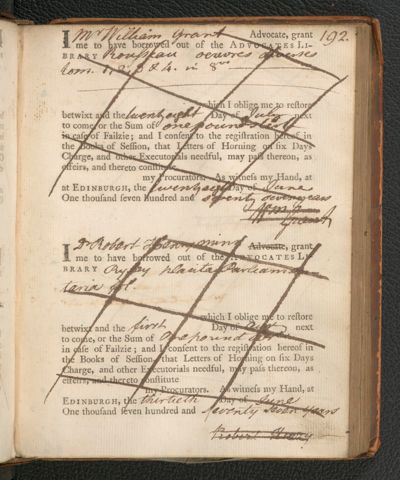 192.
I Mr William Grant Advocate, grant
me to have borrowed out of the ADVOCATES LI-
BRARY Rousseau oeuvres diverses
tom. 2, 3 & 4. in 8vo
which I oblige me to reſtore
betwixt and the twenty eight Day of July next
to come, or the Sum of one pound
in caſe of Failzie; and I conſent to the regiſtration hereof in
the Books of Seſſion, that Letters of Horning on ſix Days
Charge, and other Executorials needful, may paſs thereon, as
effeirs, and thereto conſtitute
my Procurators. As witneſs my Hand, at
at EDINBURGH, the twenty eight Day of June
One thouſand ſeven hundred and seventy seven years
Grant
I Dr Robert Henry Advocate, grant
me to have borrowed out of the ADVOCATES LI-
BRARY Ryley placita Parliamen-
taria fol.
which I oblige me to reſtore
betwixt and the first Day of next
to come, or the Sum of One pound
in caſe of Failzie; and I conſent to the regiſtration hereof in
the Books of Seſſion, that Letters of Horning on ſix Days
Charge, and other Executorials needful, may paſs thereon, as
effeirs, and thereto conſtitute
my Procurators. As witneſs my Hand, at
EDINBURGH, the thirtieth Day of June
One thouſand ſeven hundred and Seventy Seven years
Robert Henry